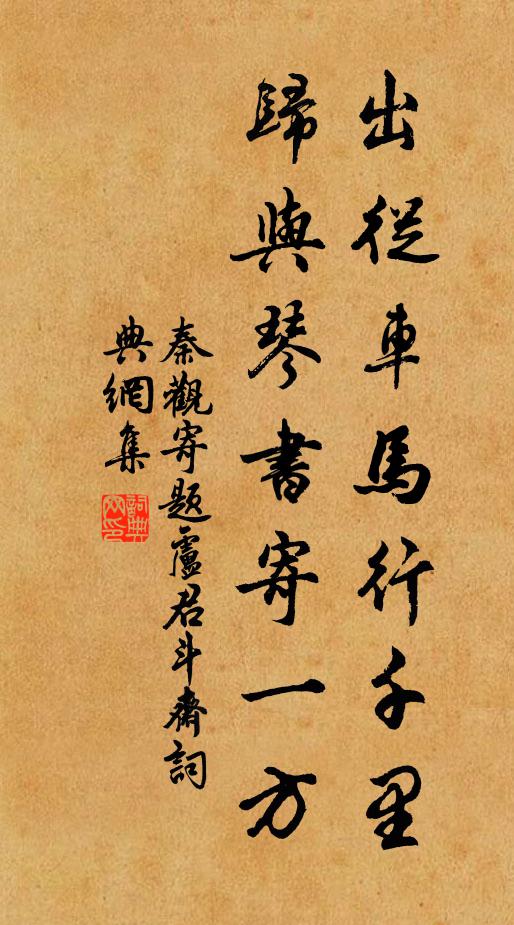 出從車馬行千里
歸與琴書寄一方
秦觀寄題盧君斗齋詞
典網集
詞典網印